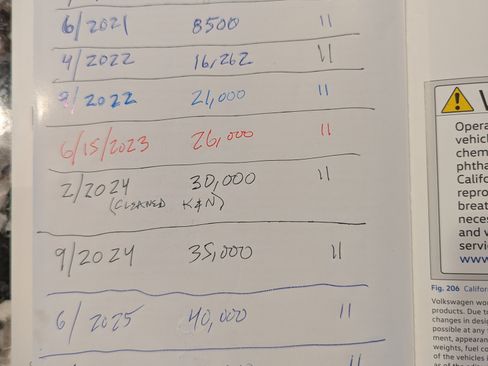 6/2021 8500 ''
4/2022 16,262 ''
9/2022 21,000 ''
6/15/2023 26,000 ''
2/2024 30,000 ''
(CLEANED K&N)
9/2024 35,000 ''
6/2025 40,000 ''
Opera
vehicl
chem
phtha
Califo
repro
breat
neces
and w
servic
www
Fig. 206 Californ
Volkswagen wor
products. Due to
changes in desig
possible at any t
ment, appearan
weights, fuel co
of the vehicles i